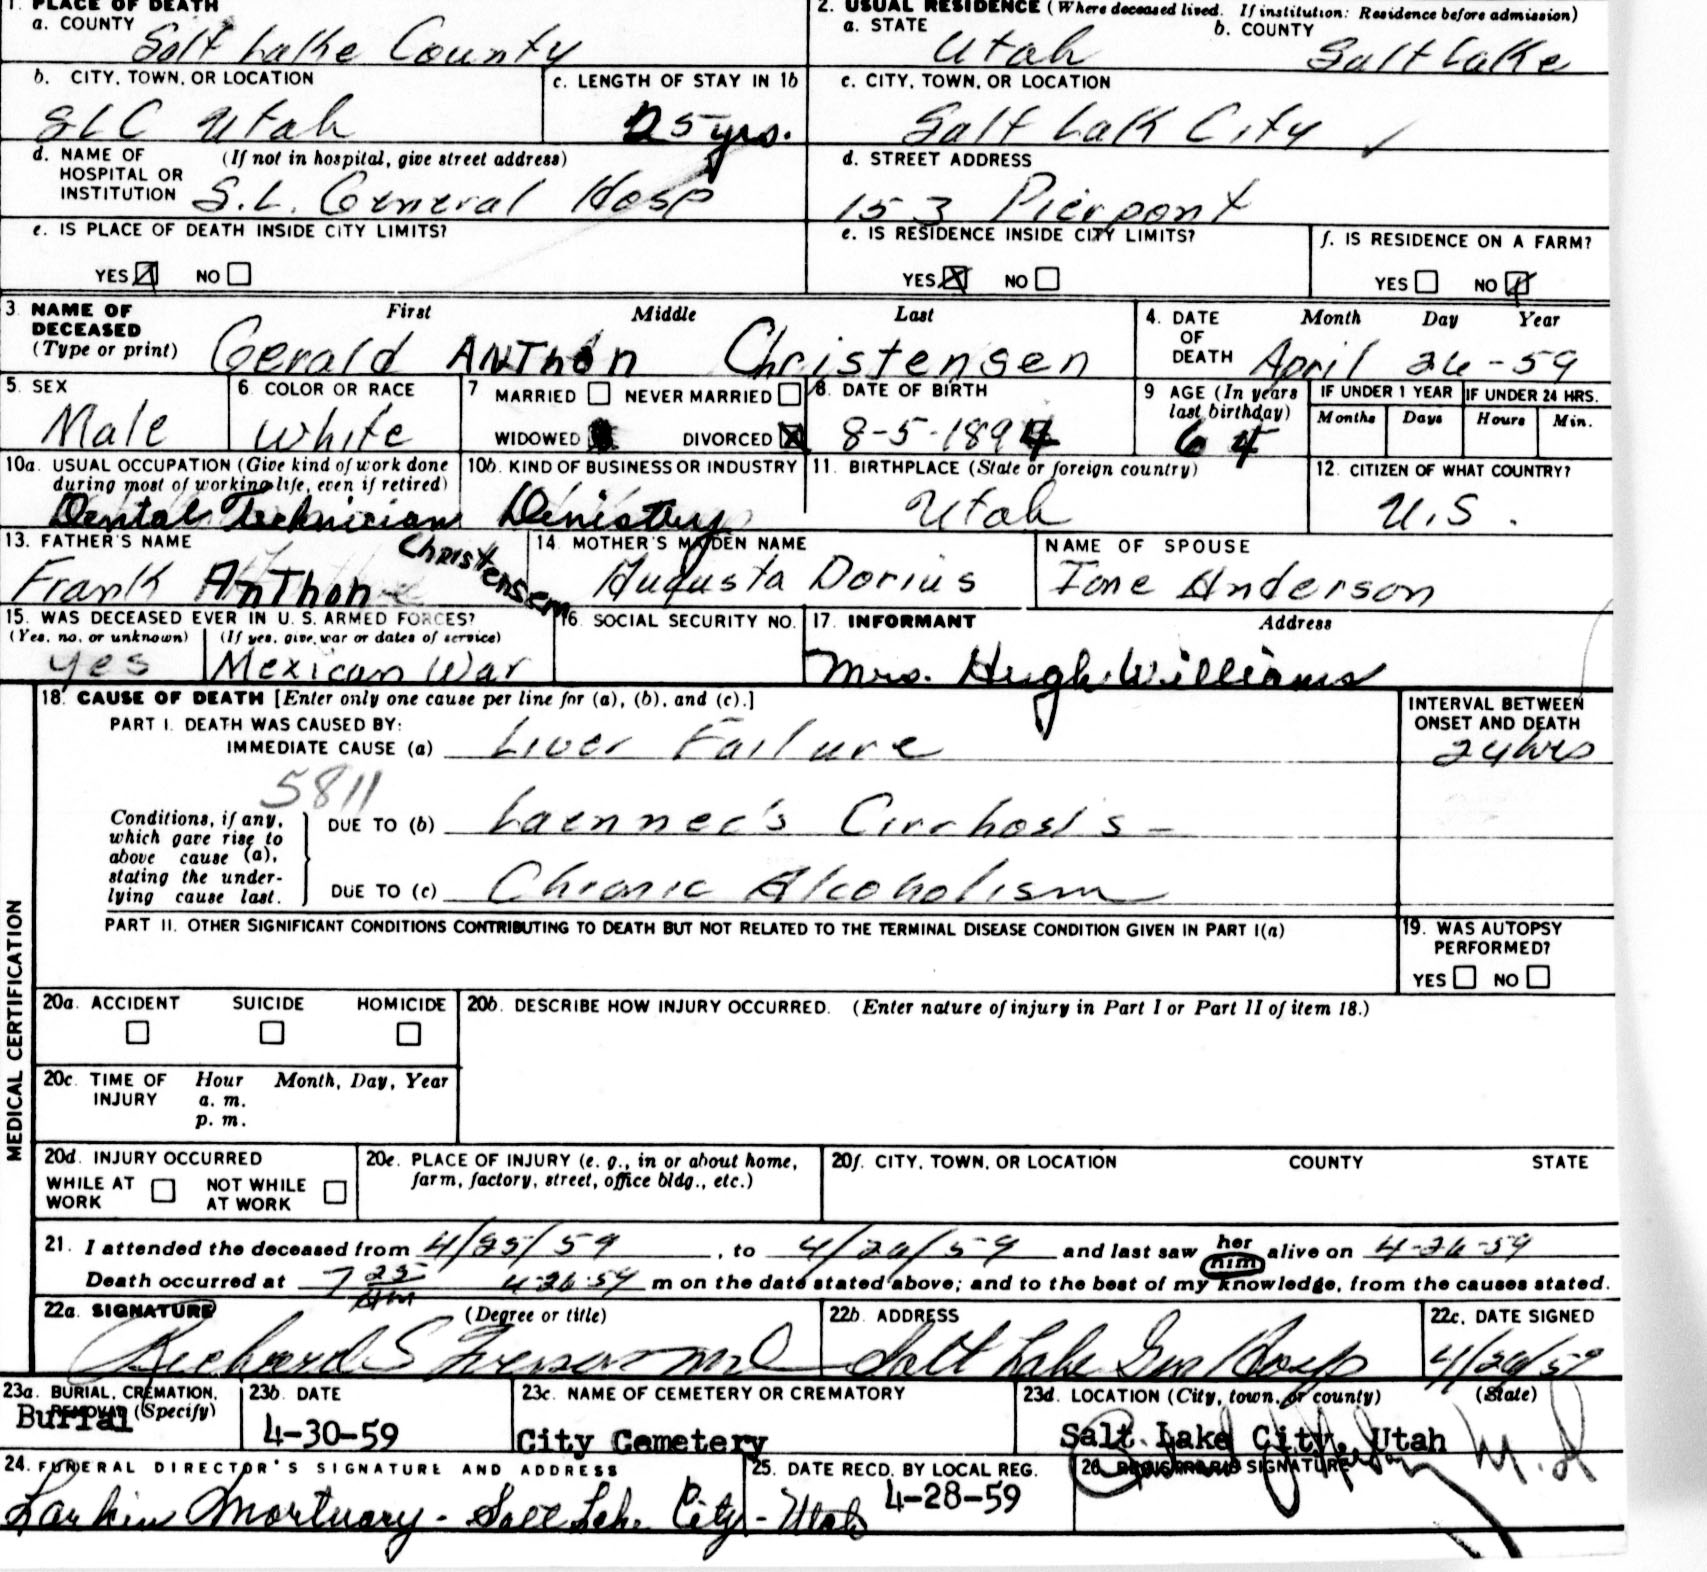 1. PLACE OF DEATH
a. COUNTY Salt Lake County
2. USUAL RESIDENCE (Where deceased lived. If institution: Residence before admission)
a. STATE Utah b. COUNTY Salt Lake
b. CITY, TOWN, OR LOCATION SLC Utah
c. LENGTH OF STAY IN 1b 25 yrs.
c. CITY, TOWN, OR LOCATION Salt Lak City
d. NAME OF HOSPITAL OR INSTITUTION (If not in hospital, give street address) S.L. General Hosp
d. STREET ADDRESS 153 Pierpont
e. IS PLACE OF DEATH INSIDE CITY LIMITS?
YES NO
e. IS RESIDENCE INSIDE CITY LIMITS?
YES NO
f. IS RESIDENCE ON A FARM?
YES NO
3 NAME OF DECEASED (Type or print) First Middle Last
Gerald ANThon Christensen
4. DATE OF DEATH Month Day Year
April 26-59
5. SEX Male
6. COLOR OR RACE White
7 MARRIED NEVER MARRIED
WIDOWED DIVORCED
8. DATE OF BIRTH 8-5-1894
9 AGE (In years last birthday) 64
IF UNDER 1 YEAR Months Days
IF UNDER 24 HRS. Hours Min.
10a. USUAL OCCUPATION (Give kind of work done during most of working life, even if retired)
Dental Technician
10b. KIND OF BUSINESS OR INDUSTRY
Denistry
11. BIRTHPLACE (State or foreign country)
Utah
12. CITIZEN OF WHAT COUNTRY?
U.S.
13. FATHER'S NAME
Frank AnThon Christensen
14. MOTHER'S MAIDEN NAME
Augusta Dorius
NAME OF SPOUSE
Ione Anderson
15. WAS DECEASED EVER IN U.S. ARMED FORCES?
(Yes, no, or unknown) (If yes, give war or dates of service)
yes Mexican War
16. SOCIAL SECURITY NO.
17. INFORMANT Address
Mrs. Hugh Williams
18. CAUSE OF DEATH [Enter only one cause per line for (a), (b), and (c).]
INTERVAL BETWEEN ONSET AND DEATH
PART I. DEATH WAS CAUSED BY:
IMMEDIATE CAUSE (a) Liver Failure 24 hrs
5811
Conditions, if any, which gave rise to above cause (a), stating the underlying cause last.
DUE TO (b) Laennec's Cirrhosis -
DUE TO (c) Chronic Alcoholism
PART II. OTHER SIGNIFICANT CONDITIONS CONTRIBUTING TO DEATH BUT NOT RELATED TO THE TERMINAL DISEASE CONDITION GIVEN IN PART I(a)
19. WAS AUTOPSY PERFORMED?
YES NO
MEDICAL CERTIFICATION
20a. ACCIDENT SUICIDE HOMICIDE
20b. DESCRIBE HOW INJURY OCCURRED. (Enter nature of injury in Part I or Part II of item 18.)
20c. TIME OF INJURY Hour Month, Day, Year
a. m.
p. m.
20d. INJURY OCCURRED
WHILE AT WORK NOT WHILE AT WORK
20e. PLACE OF INJURY (e. g., in or about home, farm, factory, street, office bldg., etc.)
20f. CITY, TOWN, OR LOCATION COUNTY STATE
21. I attended the deceased from 4/25/59, to 4/26/59 and last saw her him alive on 4-26-59
Death occurred at 7 25 AM 4-26-59 m on the date stated above; and to the best of my knowledge, from the causes stated.
22a. SIGNATURE (Degree or title)
Richard S
22b. ADDRESS
Salt Lake Gen Hosp
22c. DATE SIGNED
4/26/59
23a. BURIAL, CREMATION, REMOVAL (Specify)
Burial
23b. DATE
4-30-59
23c. NAME OF CEMETERY OR CREMATORY
City Cemetery
23d. LOCATION (City, town, or county) (State)
Salt Lake City, Utah
24. FUNERAL DIRECTOR'S SIGNATURE AND ADDRESS
Larkin Mortuary - Salt Lake City - Utah
25. DATE RECD. BY LOCAL REG.
4-28-59
26. REGISTRAR'S SIGNATURE
M.D